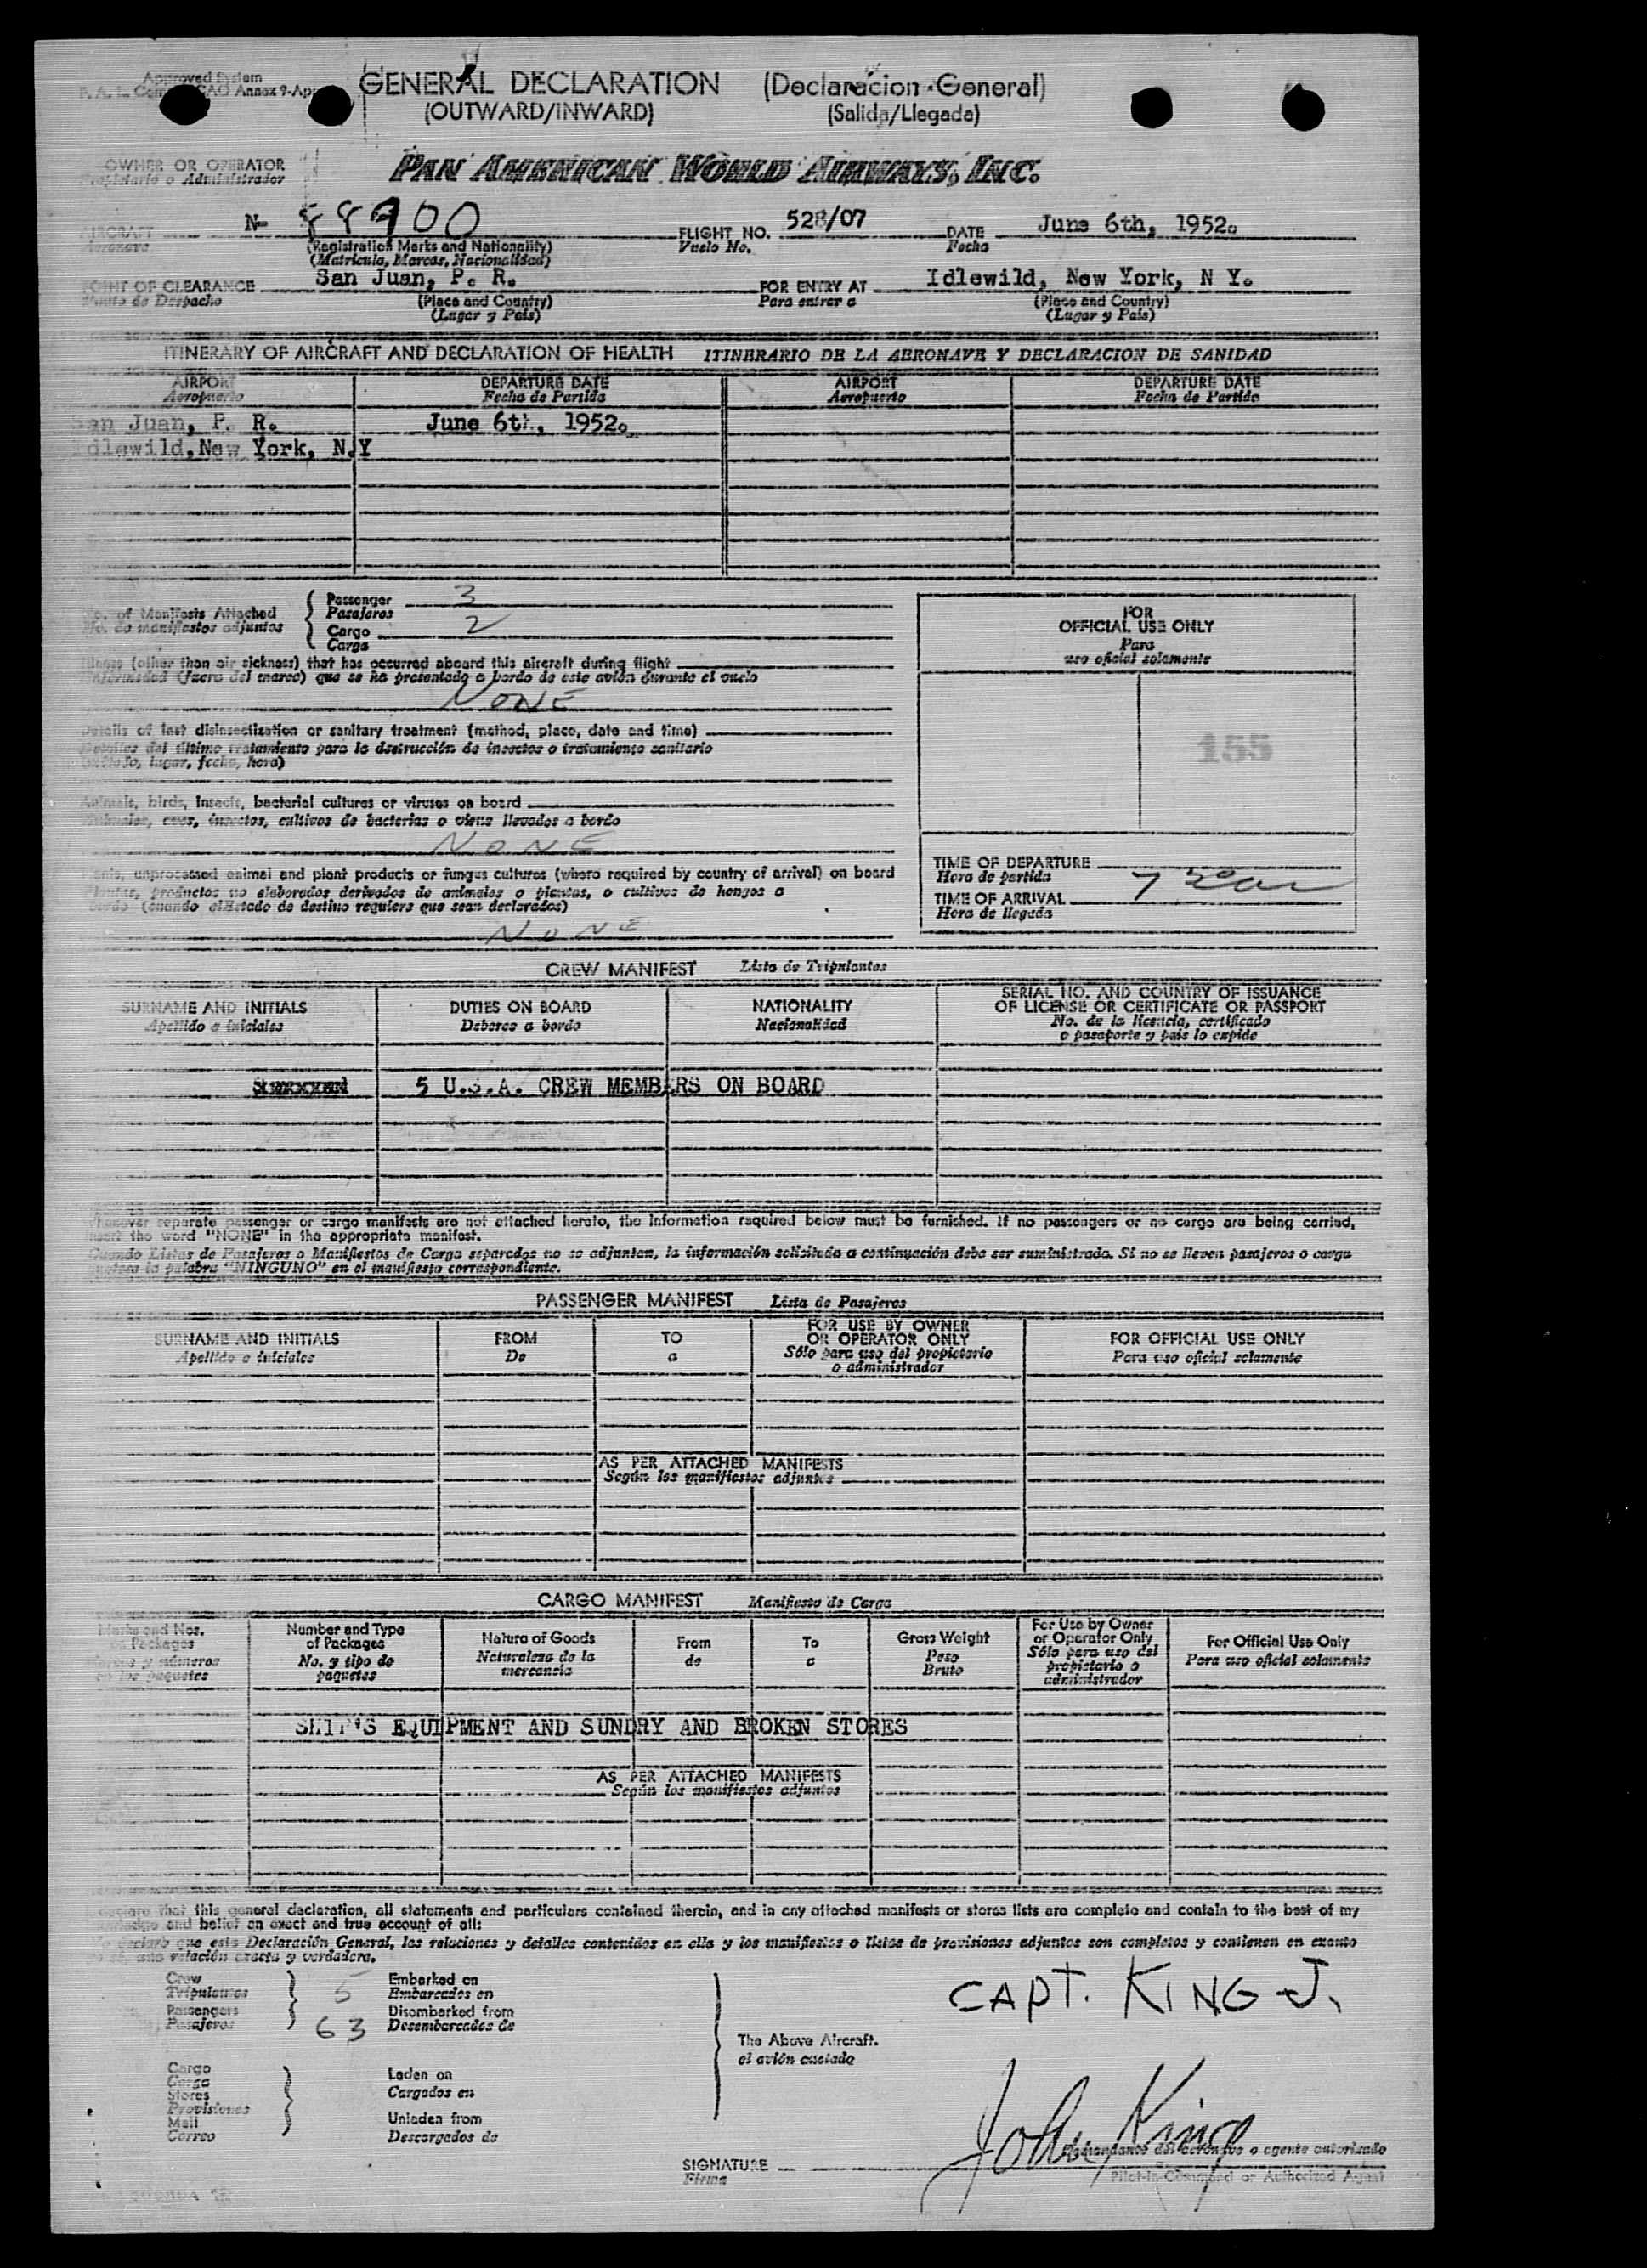 Approved System
GENERAL DECLARATION (Declaracion General)
(OUTWARD/INWARD) (Salida/Llegada)
OWNER OR OPERATOR
Propietario o Administrador
PAN AMERICAN WORLD AIRWAYS, INC.
AIRCRAFT N- 88900 FLIGHT NO. 528/07 DATE June 6th, 1952.
Aeronave (Registration Marks and Nationality) Vuelo No. Fecha
(Matricula, Marcas, Nacionalidad)
POINT OF CLEARANCE San Juan, P. R. FOR ENTRY AT Idlewild, New York, N Y.
Punto de Despacho (Place and Country) Para entrar a (Place and Country)
(Lugar y Pais) (Lugar y Pais)
ITINERARY OF AIRCRAFT AND DECLARATION OF HEALTH ITINERARIO DE LA AERONAVE Y DECLARACION DE SANIDAD
AIRPORT DEPARTURE DATE AIRPORT DEPARTURE DATE
Aeropuerto Fecha de Partida Aeropuerto Fecha de Partida
San Juan, P. R. June 6th, 1952.
Idlewild, New York, N.Y
No. of Manifests Attached Passenger 3
No. de manifiestos adjuntos Pasajeros
Cargo 2
Carga
Illness (other than air sickness) that has occurred aboard this aircraft during flight
Enfermedad (fuera del mareo) que se ha presentado a bordo de este avión durante el vuelo
NONE
Details of last disinsectization or sanitary treatment (method, place, date and time)
Detalles del último tratamiento para la destrucción de insectos o tratamiento sanitario
(método, lugar, fecha, hora)
Animals, birds, insects, bacterial cultures or viruses on board
Animales, aves, insectos, cultivos de bacterias o virus llevados a bordo
NONE
Plants, unprocessed animal and plant products or fungus cultures (where required by country of arrival) on board
Plantas, productos no elaborados derivados de animales o plantas, o cultivos de hongos a
bordo (cuando el Estado de destino requiera que sean declarados)
NONE
FOR
OFFICIAL USE ONLY
Para
uso oficial solamente
155
TIME OF DEPARTURE
Hora de partida
TIME OF ARRIVAL
Hora de llegada
CREW MANIFEST Lista de Tripulantes
SURNAME AND INITIALS DUTIES ON BOARD NATIONALITY SERIAL NO. AND COUNTRY OF ISSUANCE
OF LICENSE OR CERTIFICATE OR PASSPORT
Apellido e iniciales Deberes a bordo Nacionalidad No. de la licencia, certificado
o pasaporte y pais lo expide
5 U.S.A. CREW MEMBERS ON BOARD
Whenever separate passenger or cargo manifests are not attached hereto, the information required below must be furnished. If no passengers or no cargo are being carried,
insert the word "NONE" in the appropriate manifest.
Cuando Listas de Pasajeros o Manifiestos de Carga separados no se adjuntan, la información solicitada a continuación debe ser suministrada. Si no se lleven pasajeros o carga
la palabra "NINGUNO" en el manifiesto correspondiente.
PASSENGER MANIFEST Lista de Pasajeros
SURNAME AND INITIALS FROM TO FOR USE BY OWNER FOR OFFICIAL USE ONLY
OR OPERATOR ONLY
Apellido e iniciales De a Sólo para uso del propietario Para uso oficial solamente
o administrador
AS PER ATTACHED MANIFESTS
Según los manifiestos adjuntos
CARGO MANIFEST Manifiesto de Carga
Marks and Nos.
on Packages
Marcas y números
en los paquetes
Number and Type
of Packages
No. y tipo de
paquetes
Nature of Goods
Naturaleza de la
mercancia
From
de
To
a
Gross Weight
Peso
Bruto
For Use by Owner
or Operator Only
Sólo para uso del
propietario o
administrador
For Official Use Only
Para uso oficial solamente
SHIP'S EQUIPMENT AND SUNDRY AND BROKEN STORES
AS PER ATTACHED MANIFESTS
Según los manifiestos adjuntos
I declare that this general declaration, all statements and particulars contained therein, and in any attached manifests or stores lists are complete and contain to the best of my
knowledge and belief an exact and true account of all:
declaro que esta Declaración General, las relaciones y detalles contenidos en ella y los manifiestos o listas de provisiones adjuntos son completos y contienen en cuanto
una relación exacta y verdadera.
Crew 5 Embarked on
Tripulantes Embarcados en
Passengers 63 Disembarked from
Pasajeros Desembarcados de
Cargo
Carga
Stores
Provisiones
Mail
Correo
Laden on
Cargados en
Unladen from
Descargados de
The Above Aircraft.
el avión
CAPT. KING J.
John King
SIGNATURE
Firma
Comandante del aeronave o agente autorizado
Pilot-in-Command or Authorized Agent